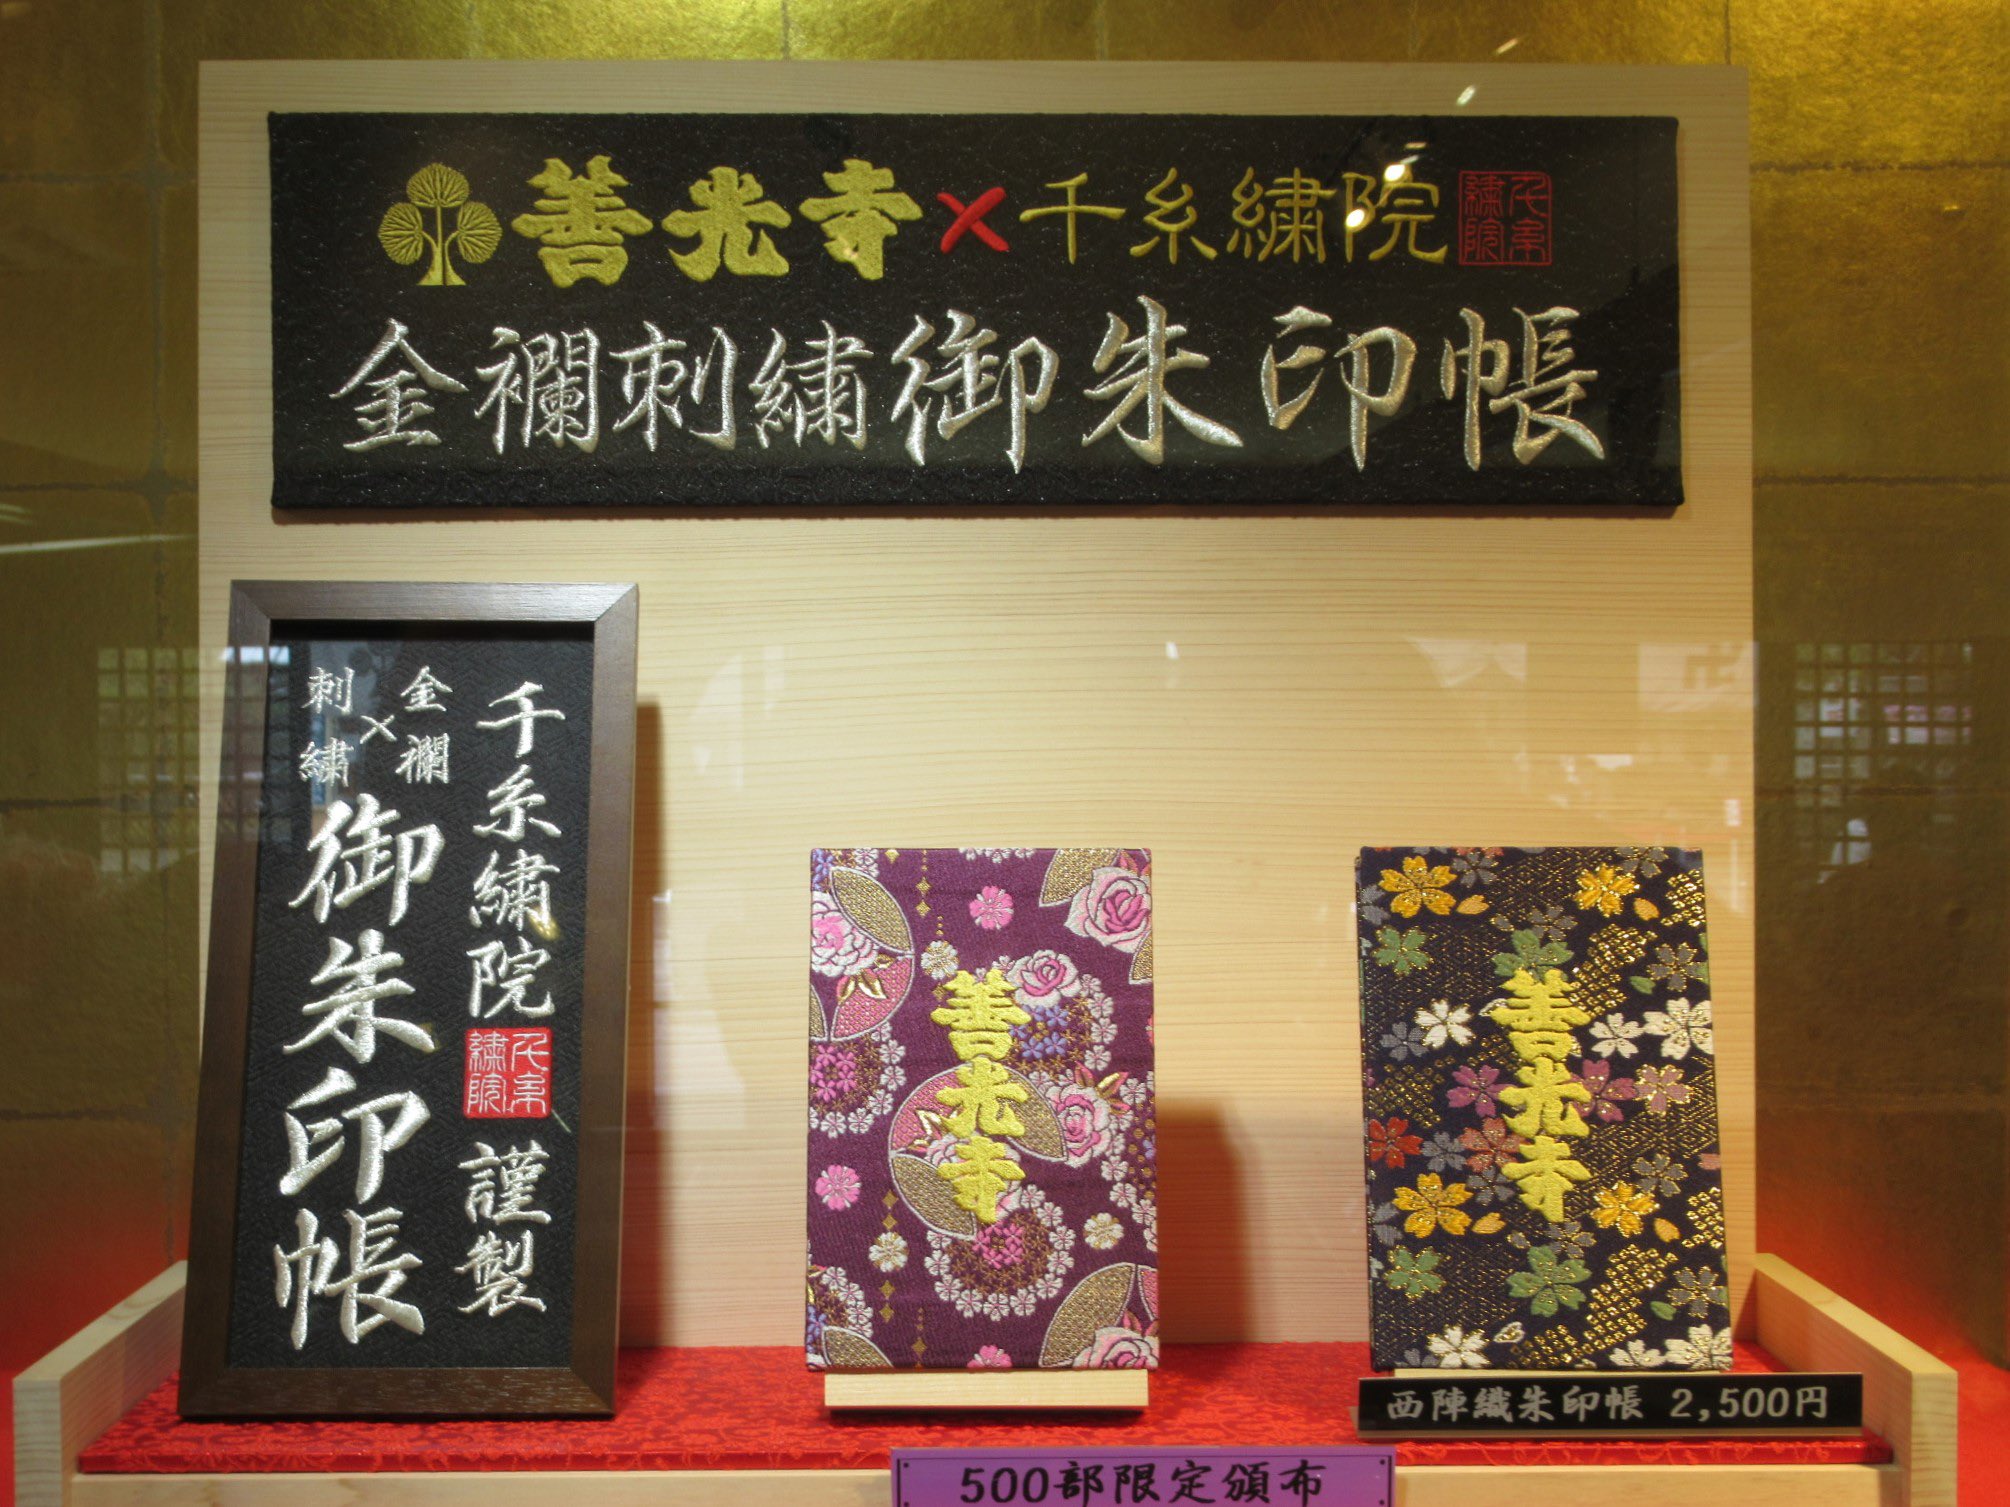 善光寺×千糸繍院 千糸繍院
金襴刺繍御朱印帳
千糸繍院 千糸繍院 謹製
金襴×刺繍
御朱印帳
善光寺
善光寺
西陣織朱印帳 2,500円
500部限定頒布